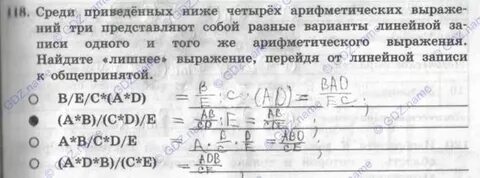 118. Среди приведённых ниже четырёх арифметических выраже-
ний три представляют собой разные варианты линейной за-
писи одного и того же арифметического выражения.
Найдите «лишнее» выражение, перейдя от линейной записи
к общепринятой.
B/E/C*(A*D) = B/E : C · (AD) = BAD/EC ;
(A*B)/(C*D)/E = AB/CD : E = AB/CDE ;
A*B/C*D/E A · B/C · D/E = ABD/CE ;
(A*D*B)/(C*E) = ADB/CE ;
© GDZ.name